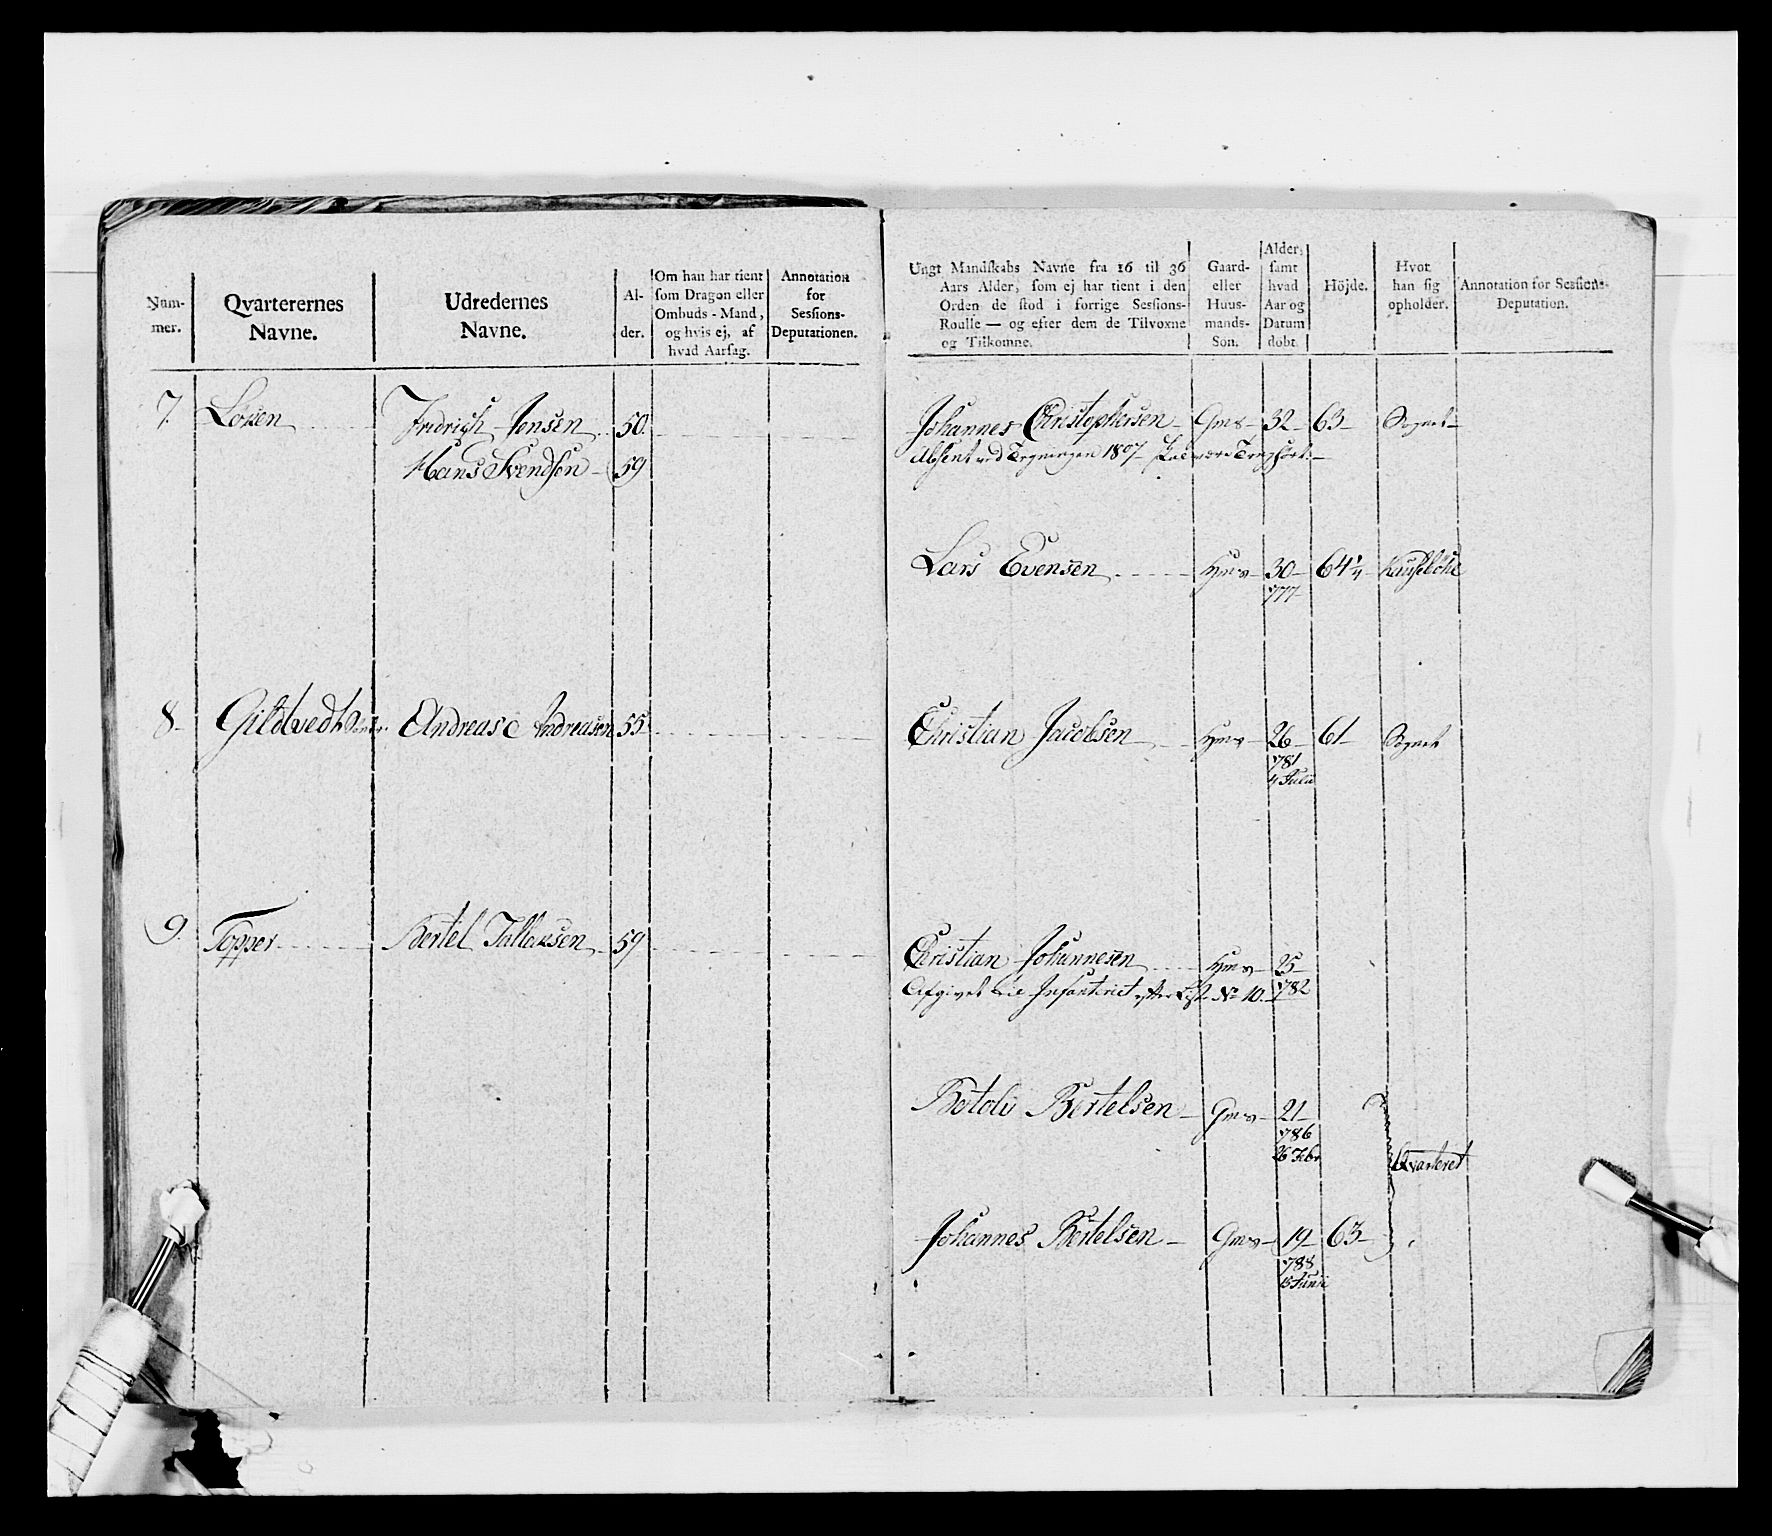 Num-
mer.
Qvarterernes
Navne.
Udredernes
Navne.
Al-
der.
Om han har tient
som Dragon eller
Ombuds-Mand,
og hvis ej, af
hvad Aarsag.
Annotation
for
Sessions-
Deputationen.
7. Loken Fridrich Jensen 50.
Hans Svendsen 59
8 Gildvedt Andreas Andreasen 55
9. Topper Bertel Tallaksen 59
Ungt Mandskabs Navne fra 16 til 36
Aars Alder, som ej har tient i den
Orden de stod i forrige Sessions-
Roulle — og efter dem de Tilvoxne
og Tilkomne.
Gaard-
eller
Huus-
mands-
Søn.
Alder,
samt
hvad
Aar og
Datum
døbt.
Højde.
Hvor
han sig
opholder.
Annotation for Sessions-
Deputation.
Johannes Christophersen Gms 32 63 Sognet
Absent ved Tegningen 1807
Lars Evensen Hms 30 64¼
777
Christian Jacobsen Hms 26 61 Sognet
781
4 Julii
Christian Johannesen Hms 25
Afgivet til Infanteriet efter List. No 10. 782
Botolv Bertelsen Gms 21
786
26 Febr
Qvarteret
Johannes Bertelsen Gms 19 63
788
15 Junii